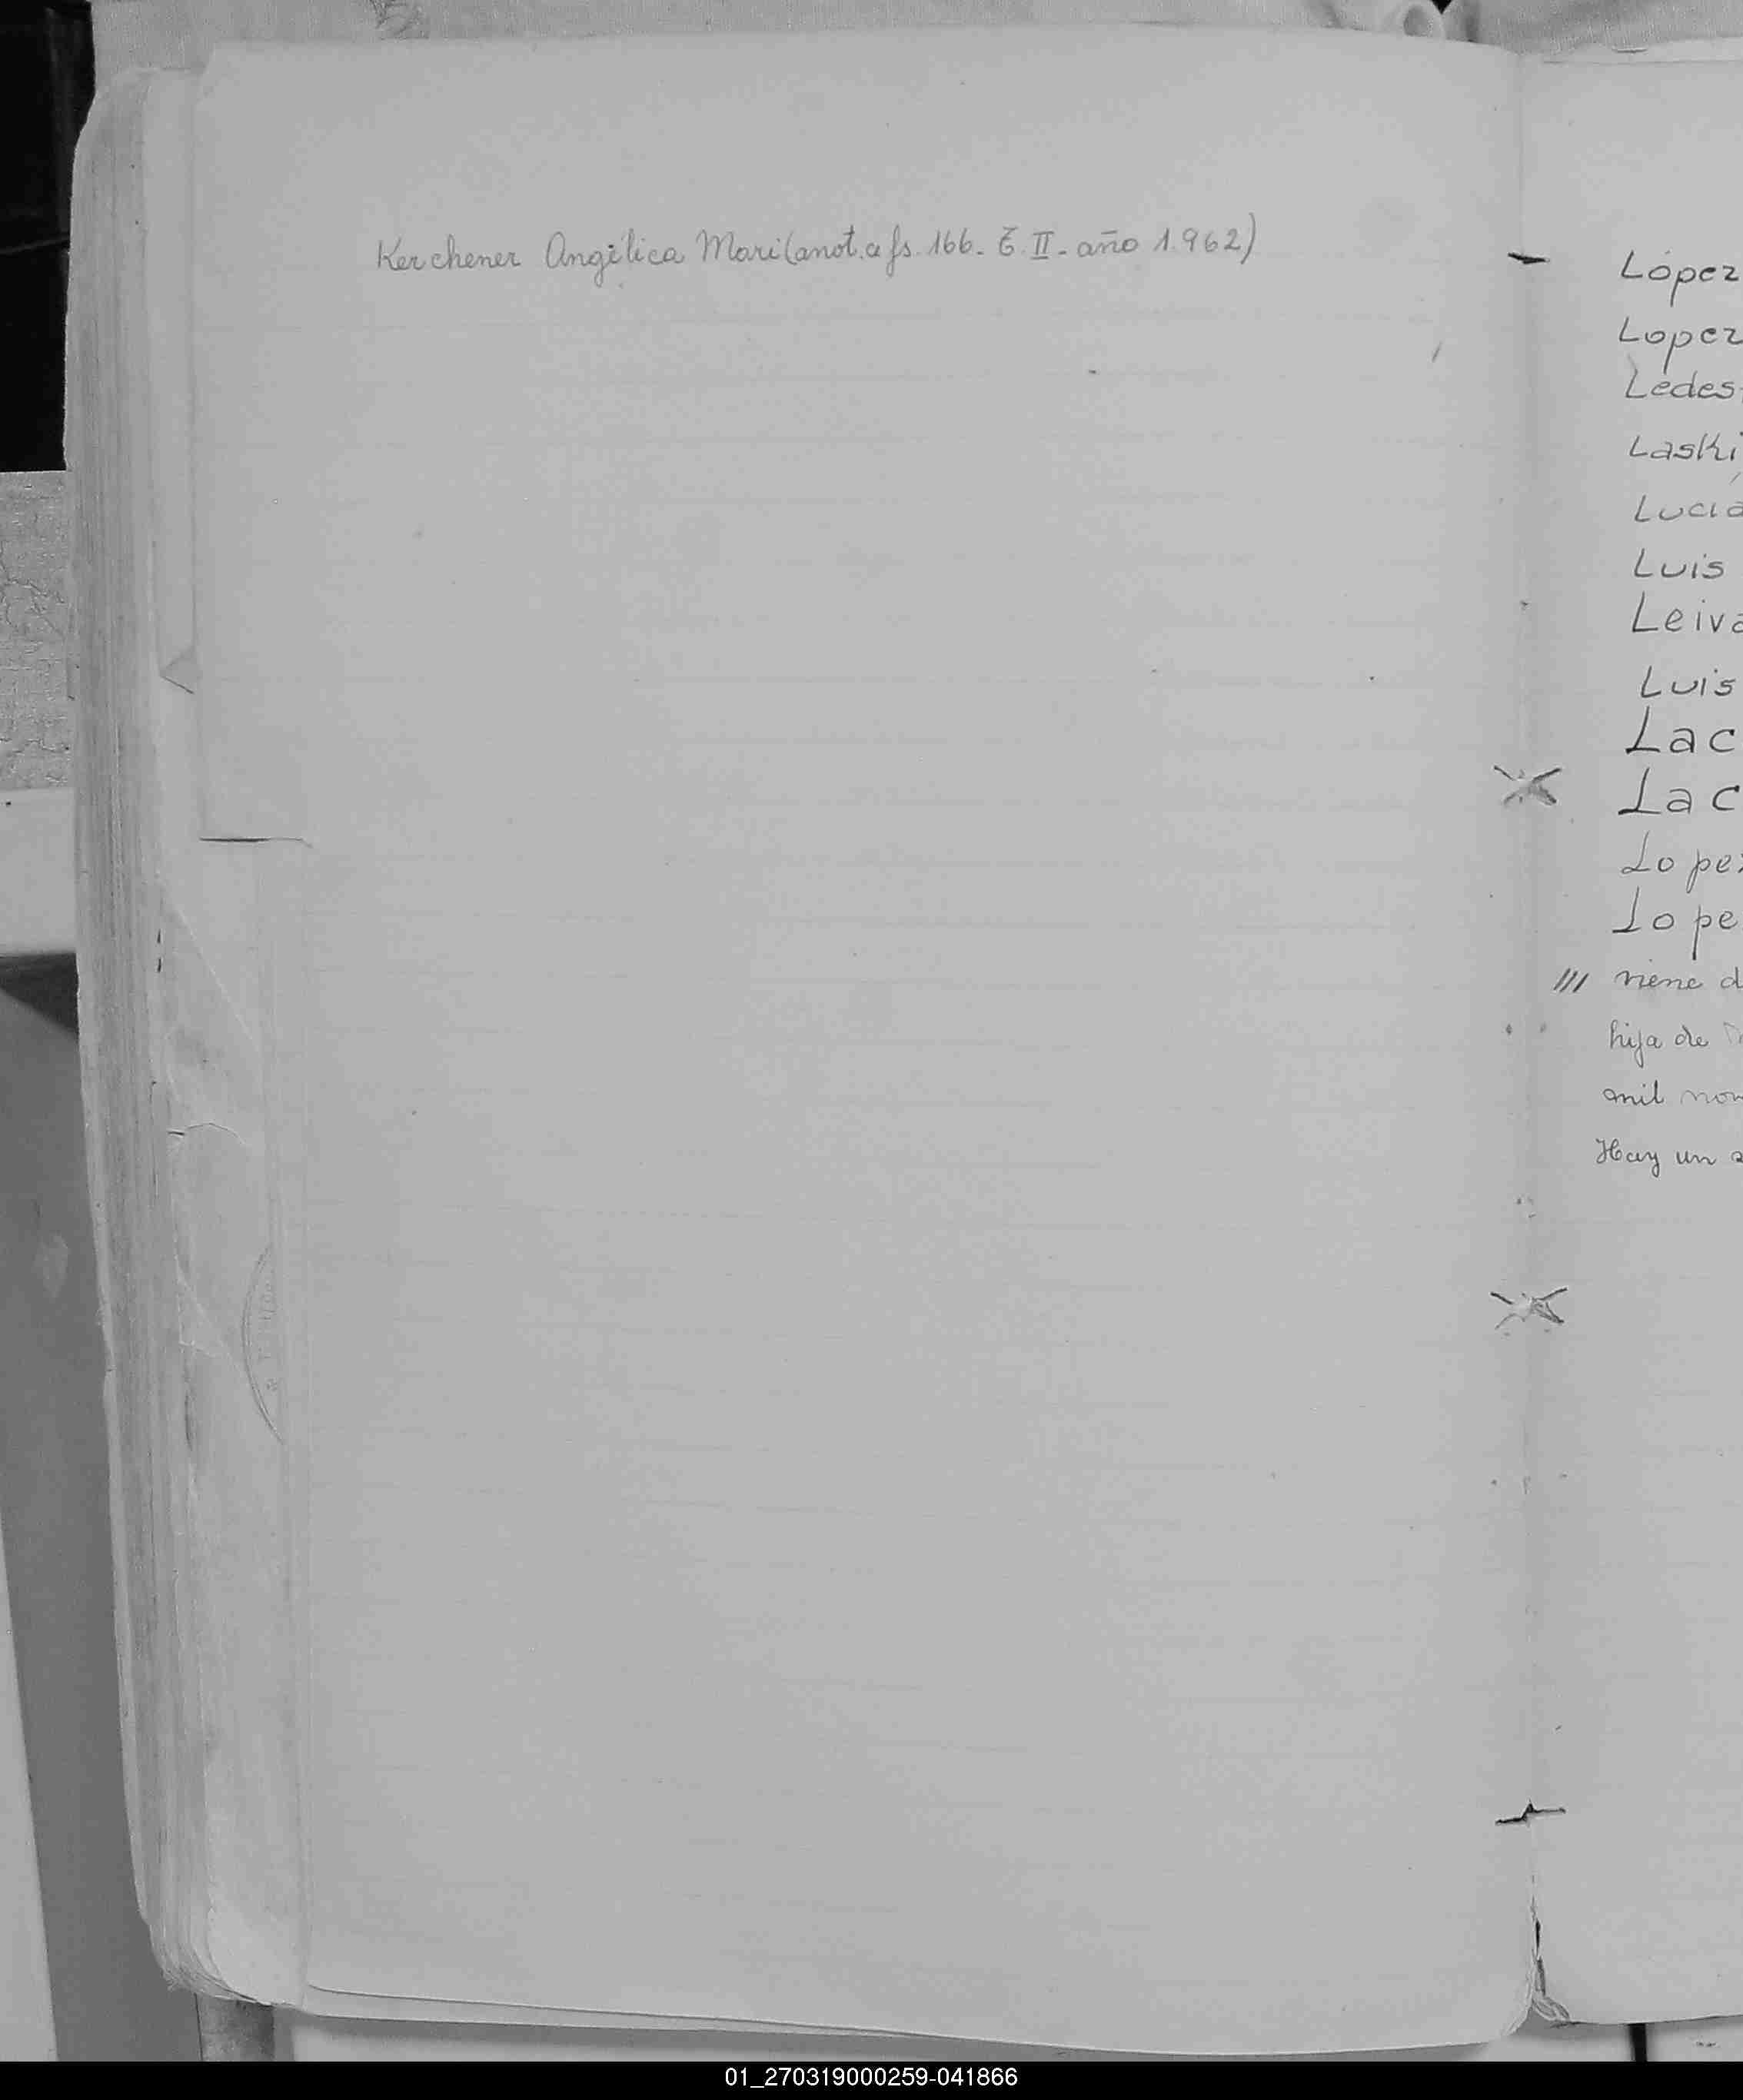 Kerchener Angélica Mari (anot. a fs. 166. T. II - año 1.962)
López
Lopez
Ledes
Laski
Lucía
Luis
Leiva
Luis
Lac
Lac
Lopez
Lope
/// viene d
hija de
mil nov
Hay un s
01_270319000259-041866